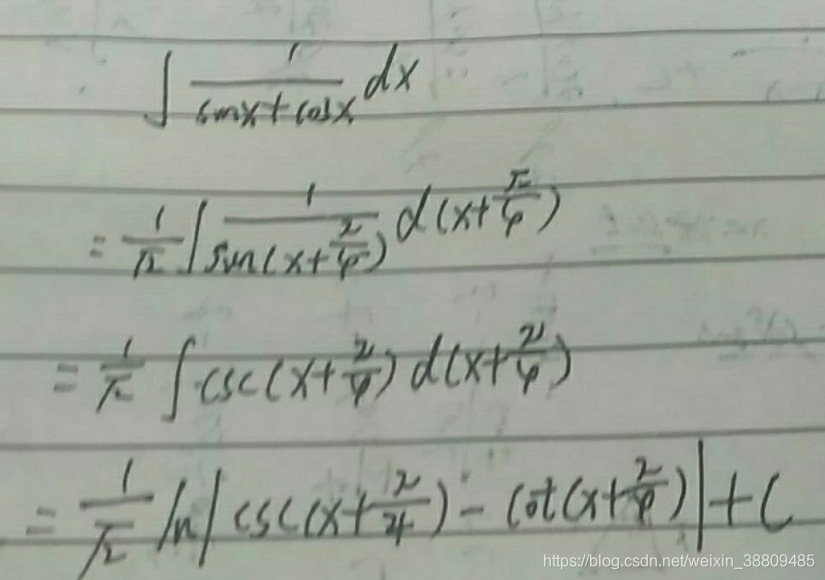 ∫ 1/(sinx+cosx) dx
= 1/√2 ∫ 1/sin(x+π/4) d(x+π/4)
= 1/√2 ∫ csc(x+π/4) d(x+π/4)
= 1/√2 ln|csc(x+π/4) - cot(x+π/4)| + C
https://blog.csdn.net/weixin_38809485